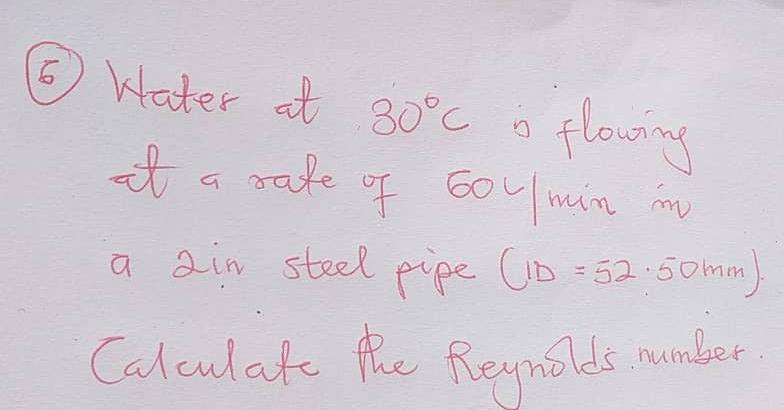 ⑤ Water at 30°C is flowing
at a rate of 60L/min in
a 2in steel pipe (ID = 52.50mm).
Calculate the Reynolds number.